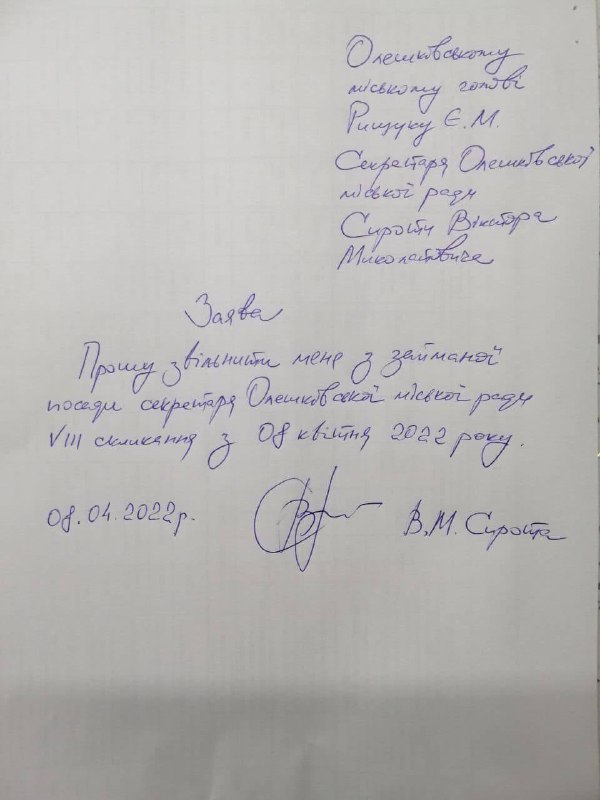 Олешківському
міському голові
Рищуку Є.М.
Секретаря Олешківської
міської ради
Сироти Віктора
Миколайовича
Заява
Прошу звільнити мене з займаної
посади секретаря Олешківської міської ради
VIII скликання з 08 квітня 2022 року.
08.04.2022р.
В.М. Сирота